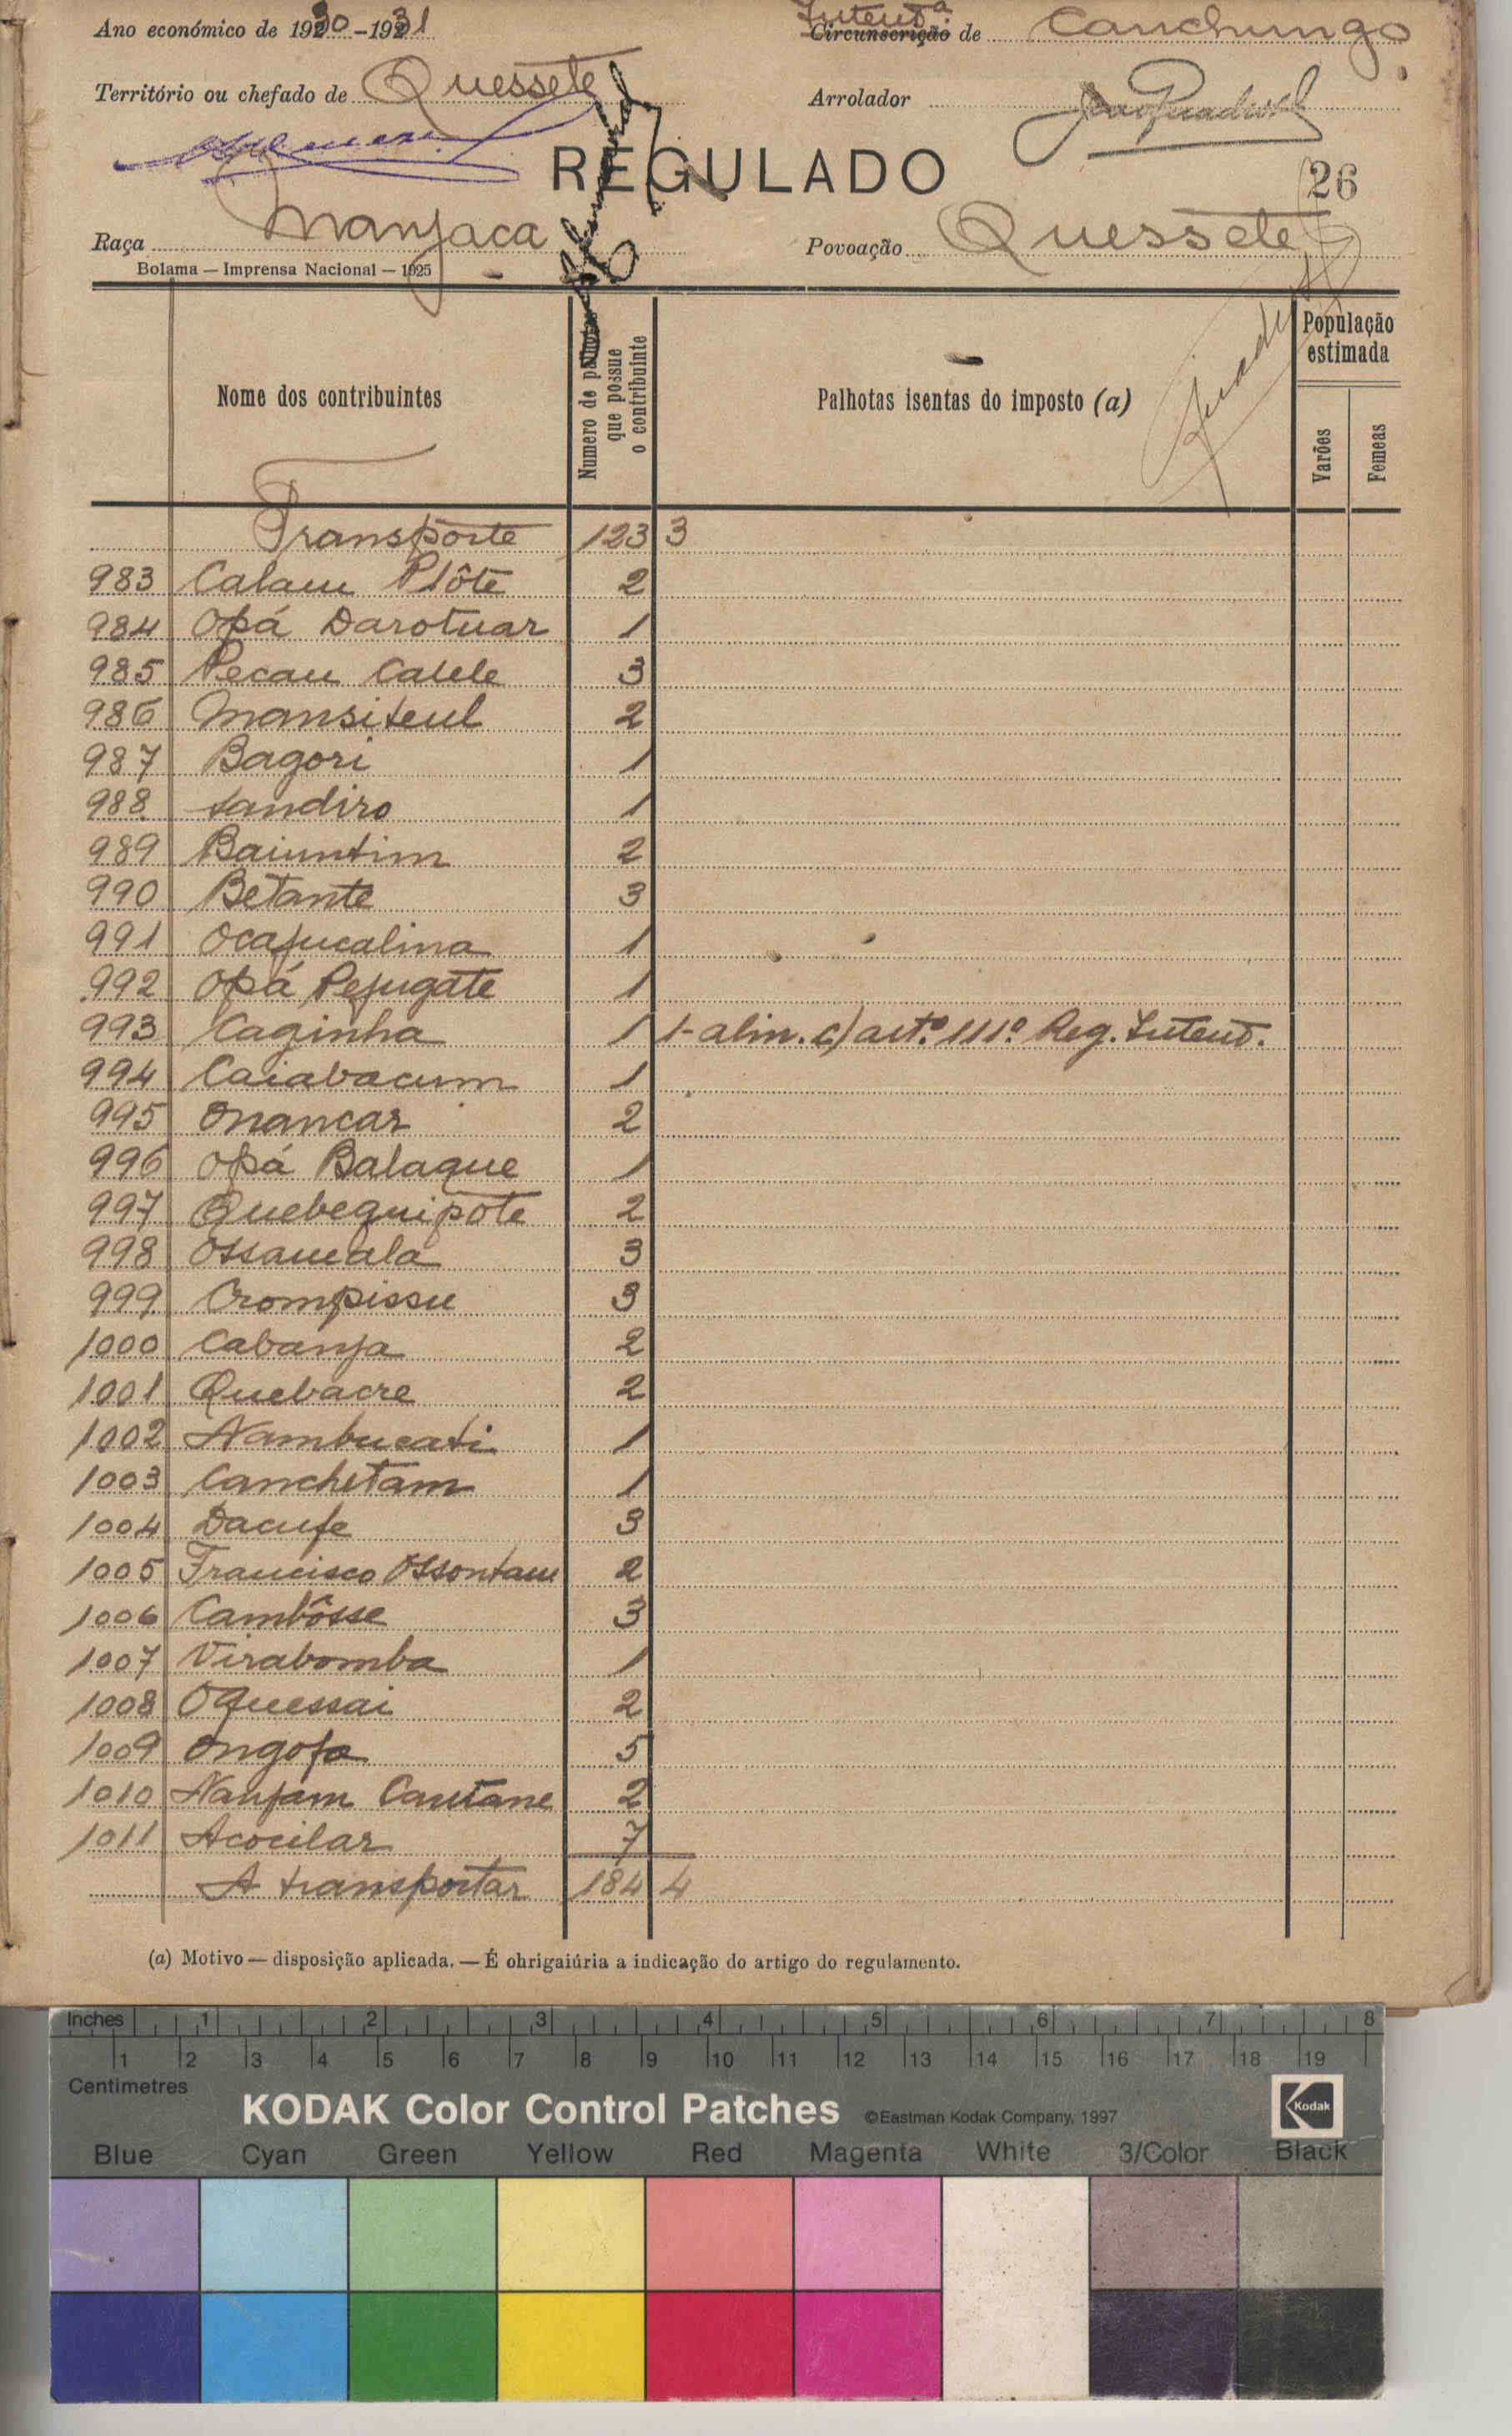 Ano económico de 1930-1931 Intend.ª Circunscrição de Canchungo
Território ou chefado de Quessete Arrolador
REGULADO 26
Raça Manjaca Povoação Quessete
Bolama — Imprensa Nacional — 1925
Nome dos contribuintes
Numero de palhotas que possue o contribuinte
Palhotas isentas do imposto (a)
População estimada
Varões Femeas
Transporte 123 3
983 Calau Plôte 2
984 Opá Darotuar 1
985 Pecau Catele 3
986 Mansiteul 2
987 Bagori 1
988 tandiro 1
989 Baiuntim 2
990 Betante 3
991 Ocajucalina 1
992 Opá Pejugate 1
993 Caginha 1 1-alin. c) art.º 111º Reg. Intend.
994 Caiabacum 1
995 Onancar 2
996 Opá Balaque 1
997 Quebequipote 2
998 Ossaucala 3
999 Crompissu 3
1000 Cabanja 2
1001 Quebacre 2
1002 Nambucati 1
1003 Canchetam 1
1004 Dacufe 3
1005 Francisco Ossontau 2
1006 Cambôsse 3
1007 Virabomba 1
1008 Oquessai 2
1009 Ongofa 5
1010 Nanjam Cautane 2
1011 Acocilar 7
A transportar 184 4
(a) Motivo — disposição aplicada. — É ohrigaiúria a indicação do artigo do regulamento.
Inches 1 2 3 4 5 6 7 8
1 2 3 4 5 6 7 8 9 10 11 12 13 14 15 16 17 18 19
Centimetres
KODAK Color Control Patches ©Eastman Kodak Company, 1997 Kodak
Blue Cyan Green Yellow Red Magenta White 3/Color Black